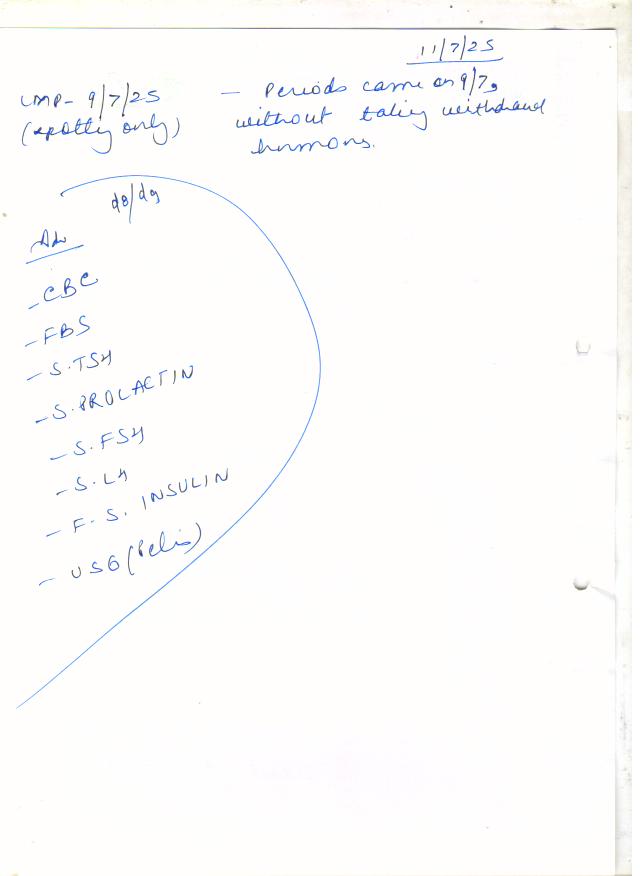 11/7/25
LMP- 9/7/25 - Periods came on 9/7,
(spotty only) without taking withdrawal
hormons.
d8/d9
Adv
- CBC
- FBS
- S. TSH
- S. PROLACTIN
- S. FSH
- S. LH
- F. S. INSULIN
- USG (Pelvis)